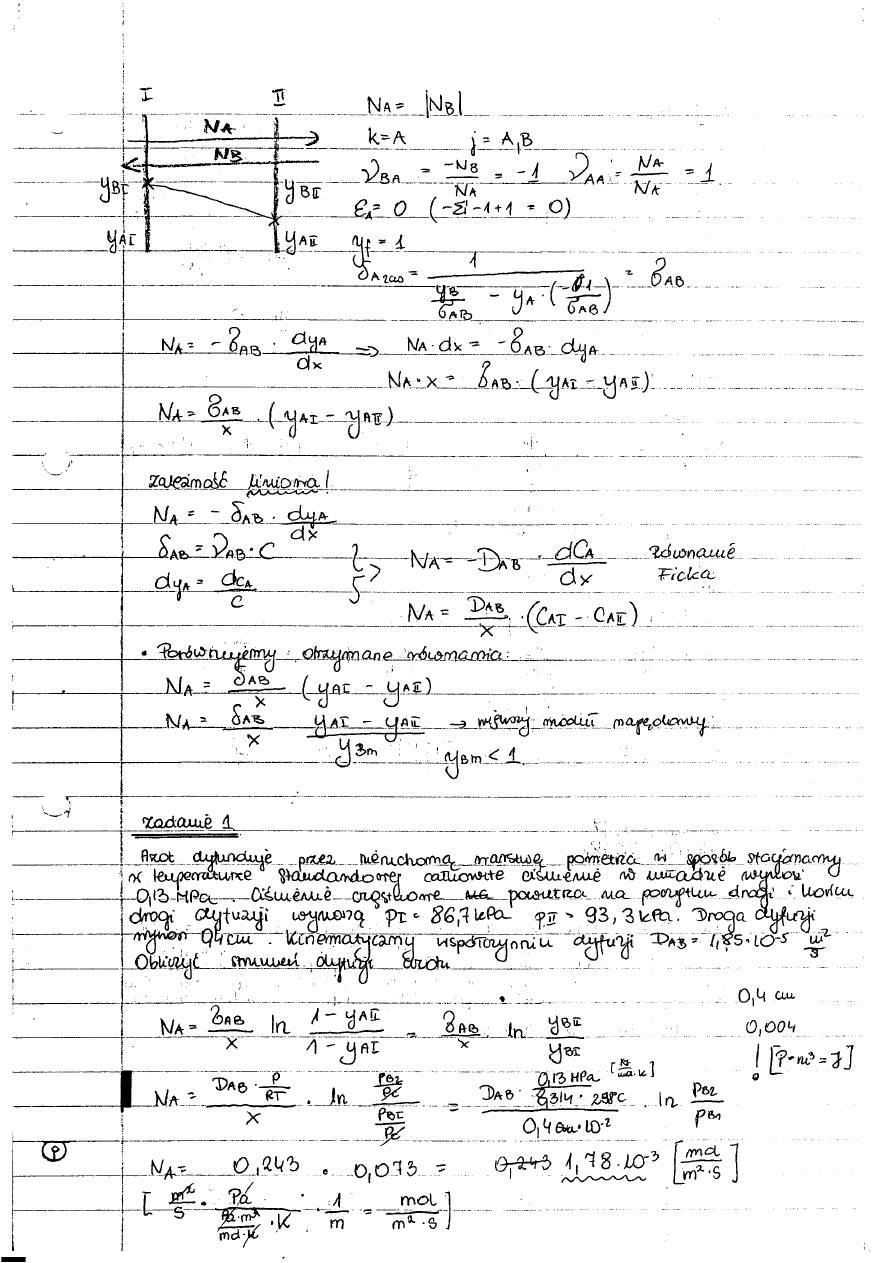 I II
NA = |NB|
NA
k=A j = A,B
NB
νBA = -NB/NA = -1 νAA = NA/NA = 1
yBI yBII
εA = 0 (-Σ -1+1 = 0)
yAI yAII
yf = 1
δA gaz = 1/(yB/δAB - yA·(-1/δAB)) = δAB
NA = -δAB · dyA/dx => NA·dx = -δAB·dyA
NA·x = δAB·(yAI - yAII)
NA = δAB/x · (yAI - yAII)
zależność liniowa!
NA = - δAB · dyA/dx
δAB = νAB·C
dyA = dCA/C
NA = -DAB · dCA/dx równanie Ficka
NA = DAB/x · (CAI - CAII)
• Porównujemy otrzymane równania:
NA = δAB/x (yAI - yAII)
NA = δAB/x (yAI - yAII)/yBm → większy moduł napędowy
yBm < 1
zadanie 1
Azot dyfunduje przez nieruchomą warstwę powietrza w sposób stacjonarny
w temperaturze standardowej całkowite ciśnienie w układzie wynosi
0,13 MPa. Ciśnienie cząstkowe powietrza na początku drogi i końcu
drogi dyfuzji wynoszą pI = 86,7 kPa pII = 93,3 kPa. Droga dyfuzji
wynosi 0,4 cm. Kinematyczny współczynnik dyfuzji DAB = 1,85·10-5 m²/s
Obliczyć strumień dyfuzji azotu.
0,4 cm
NA = δAB/x ln (1 - yAII)/(1 - yAI) = δAB/x · ln yBII/yBI
0,004
! [P·m³ = J]
NA = (DAB · P/RT)/x · ln (PB2/Pc)/(PBI/Pc) = (DAB · 0,13 MPa/(8,314 · 298°C))/(0,4 cm·10-2) · ln PB2/PB1
NA = 0,243 · 0,073 = 0,243 1,78·10-3 [mol/m²·s]
[m²/s · Pa/(Pa·m³/mol·K · K) · 1/m = mol/m²·s]